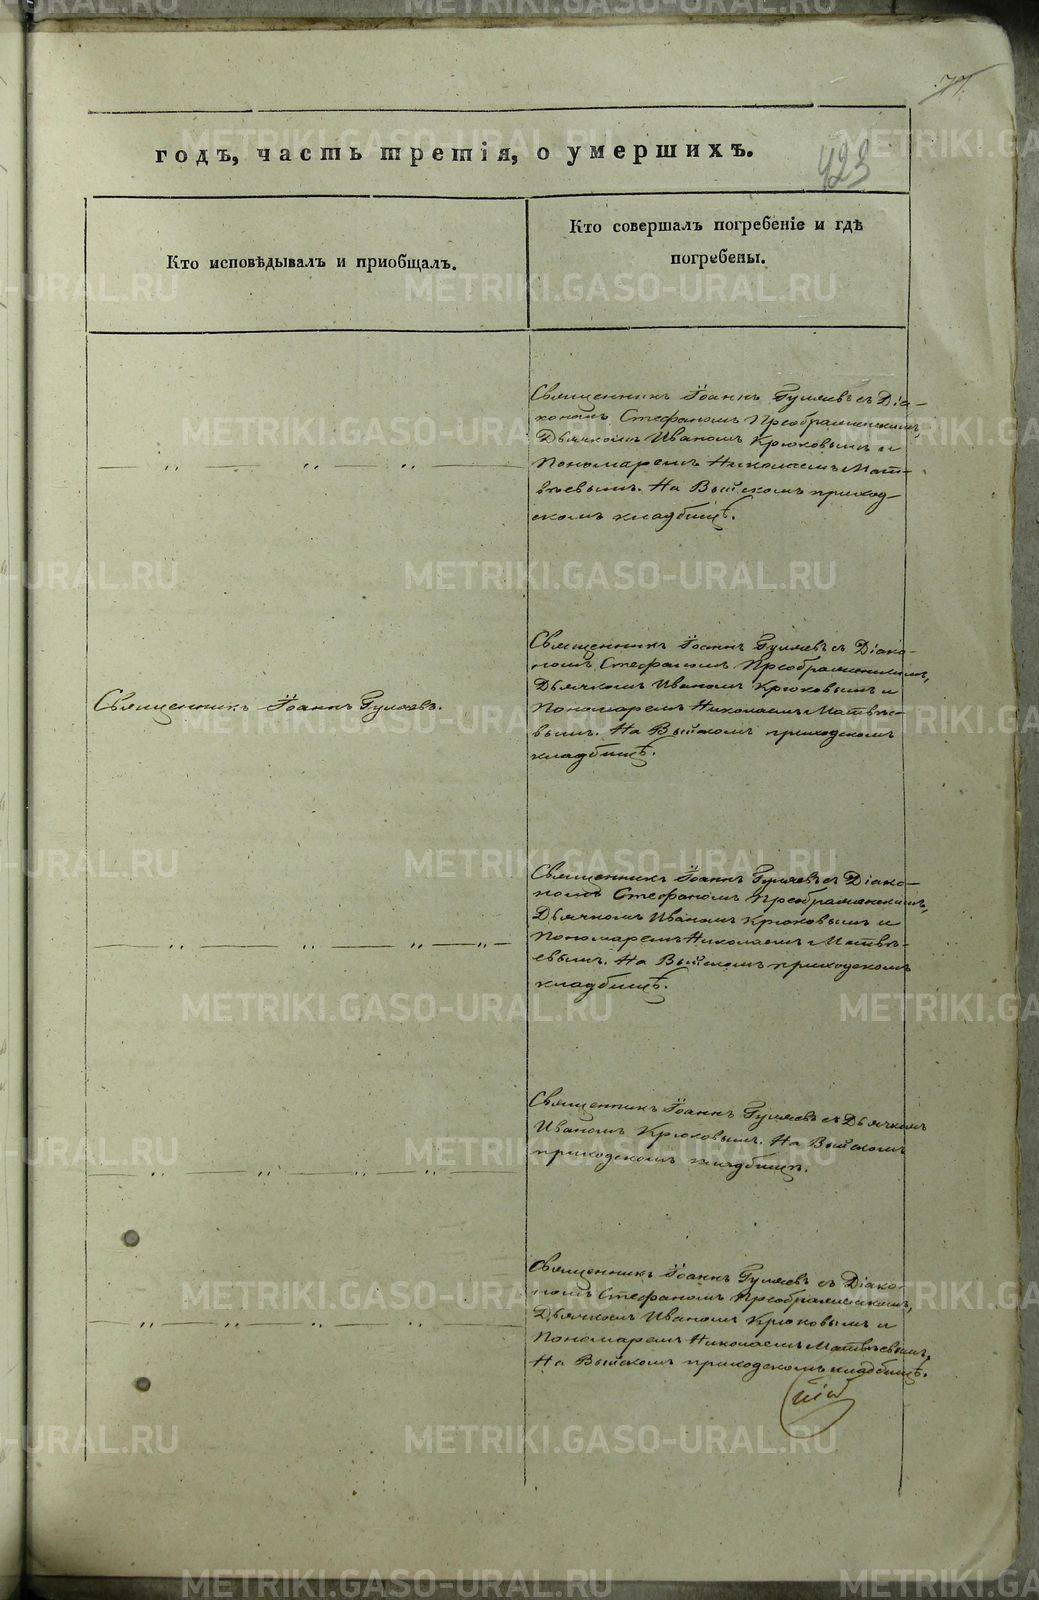 77.
годъ, часть третія, о умершихъ.
423
Кто исповѣдывалъ и приобщалъ.
Кто совершалъ погребеніе и гдѣ
погребены.
Священникъ Іоаннъ Гуляевъ съ Діа-
кономъ Стефаномъ Преображенскимъ,
Дьячкомъ Иваномъ Крюковымъ и
Пономаремъ Николаемъ Мат-
вѣевымъ. На Выйскомъ приход-
скомъ кладбищѣ.
Священникъ Іоаннъ Гуляевъ.
Священникъ Іоаннъ Гуляевъ съ Діако-
номъ Стефаномъ Преображенскимъ,
Дьячкомъ Иваномъ Крюковымъ и
Пономаремъ Николаемъ Матвѣе-
вымъ. На Выйскомъ приходскомъ
кладбищѣ.
Священникъ Іоаннъ Гуляевъ съ Діако-
номъ Стефаномъ Преображенскимъ,
Дьячкомъ Иваномъ Крюковымъ и
Пономаремъ Николаемъ Матвѣ-
евымъ. На Выйскомъ приходскомъ
кладбищѣ.
Священникъ Іоаннъ Гуляевъ съ Дьячкомъ
Иваномъ Крюковымъ. На Выйскомъ
приходскомъ кладбищѣ.
Священникъ Іоаннъ Гуляевъ съ Діако-
номъ Стефаномъ Преображенскимъ,
Дьячкомъ Иваномъ Крюковымъ и
Пономаремъ Николаемъ Матвѣевымъ.
На Выйскомъ приходскомъ кладбищѣ.
METRIKI.GASO-URAL.RU